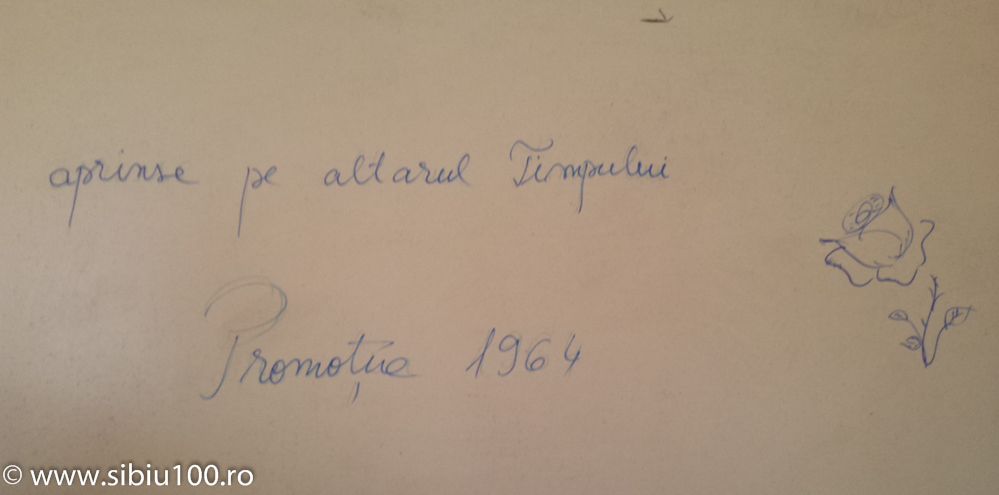 aprinse pe altarul Timpului
Promoția 1964
© www.sibiu100.ro